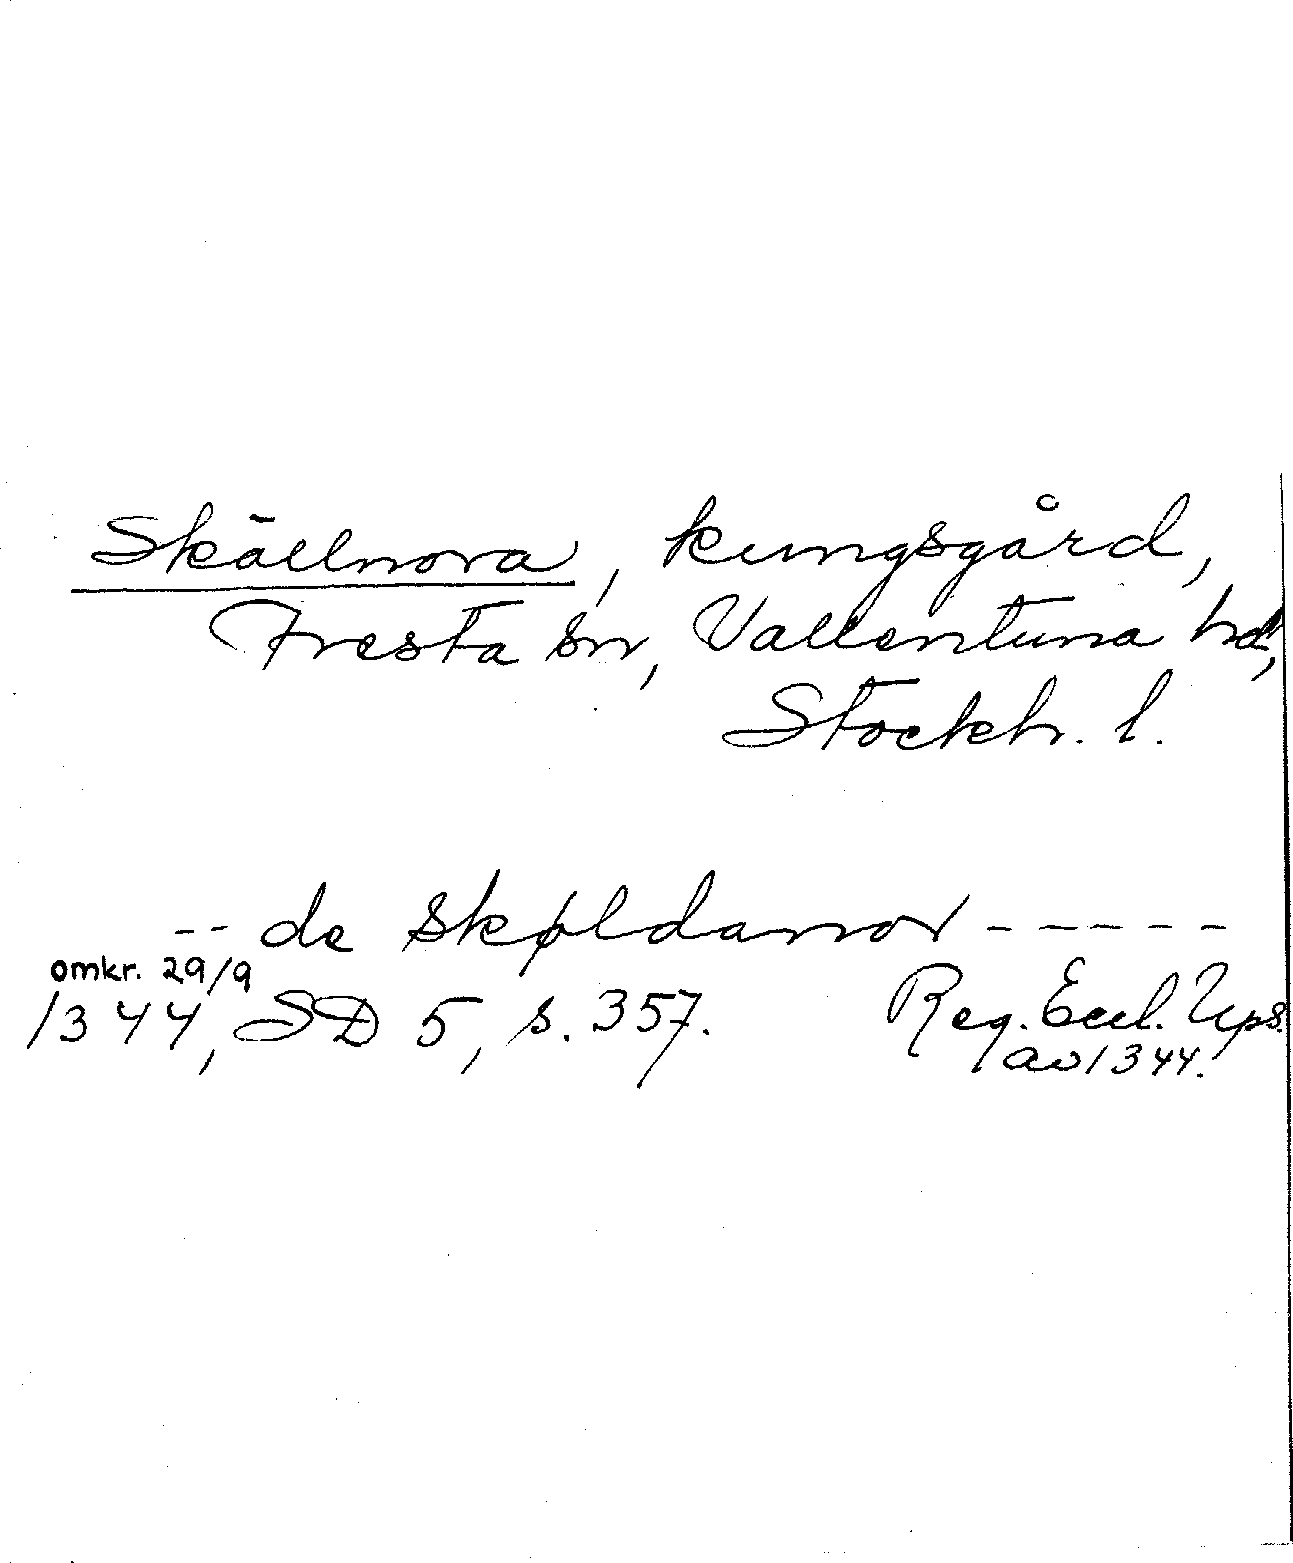 Skällnora, kungsgård,
Fresta sn, Vallentuna hd,
Stockh. l.
-- de skøldanor -----
omkr. 29/9
1344, SD 5, s. 357. Reg. Eccl. Ups.
av 1344.